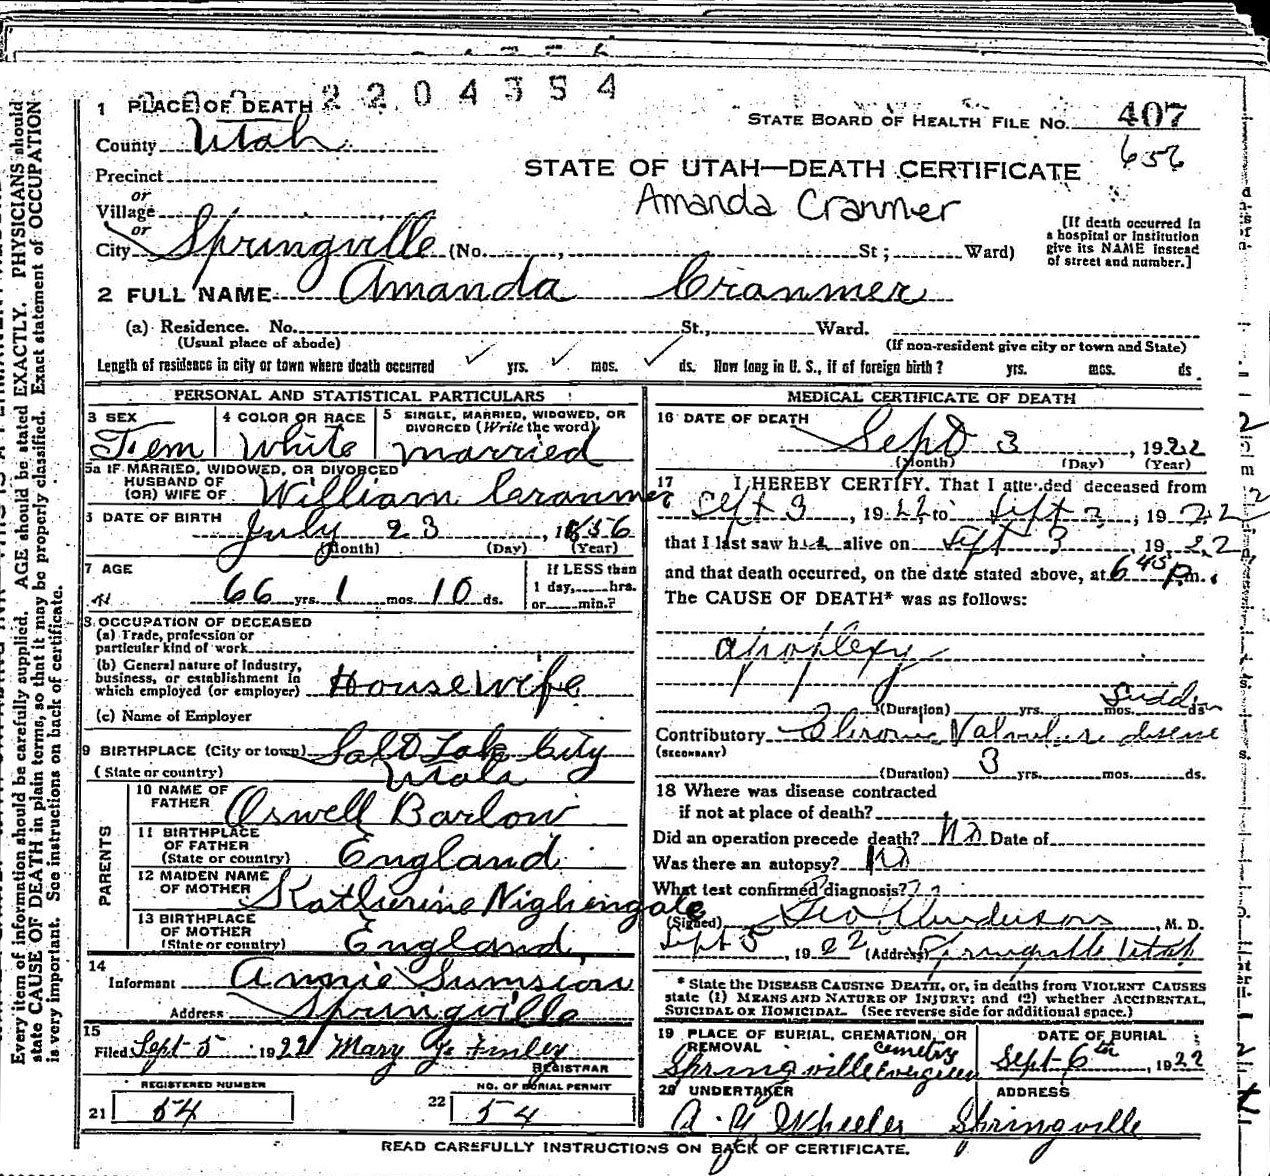 2204354
1 PLACE OF DEATH
STATE BOARD OF HEALTH FILE NO. 407
County Utah
656
Precinct
STATE OF UTAH—DEATH CERTIFICATE
or
Village
Amanda Cranmer
or
City Springville (No. , St ; Ward)
[If death occurred in
a hospital or institution
give its NAME instead
of street and number.]
2 FULL NAME Amanda Cranmer
(a) Residence. No. St., Ward.
(Usual place of abode)
(If non-resident give city or town and State)
Length of residence in city or town where death occurred ✓ yrs. ✓ mos. ✓ ds. How long in U. S., if of foreign birth? yrs. mos. ds.
PERSONAL AND STATISTICAL PARTICULARS
3 SEX
Fem
4 COLOR OR RACE
White
5 SINGLE, MARRIED, WIDOWED, OR
DIVORCED (Write the word)
married
5a IF MARRIED, WIDOWED, OR DIVORCED
HUSBAND OF
(OR) WIFE OF William Cranmer
6 DATE OF BIRTH
July 23, 1856
(Month) (Day) (Year)
7 AGE
66 yrs. 1 mos. 10 ds.
If LESS than
1 day, hrs.
or min.?
8 OCCUPATION OF DECEASED
(a) Trade, profession or
particular kind of work
(b) General nature of Industry,
business, or establishment in
which employed (or employer) Housewife
(c) Name of Employer
9 BIRTHPLACE (City or town) Salt Lake City
(State or country) Utah
PARENTS
10 NAME OF
FATHER Oswell Barlow
11 BIRTHPLACE
OF FATHER
(State or country) England
12 MAIDEN NAME
OF MOTHER Katherine Nighengale
13 BIRTHPLACE
OF MOTHER
(State or country) England
14
Informant Annie Sumsion
Address Springville
15
Filed Sept 5 1922 Mary Y. Finley
REGISTRAR
REGISTERED NUMBER
21 54
NO. OF BURIAL PERMIT
22 54
MEDICAL CERTIFICATE OF DEATH
16 DATE OF DEATH
Sept 3, 1922
(Month) (Day) (Year)
17 I HEREBY CERTIFY. That I attended deceased from
Sept 3, 1922, to Sept 3, 1922
that I last saw her alive on Sept 3, 1922
and that death occurred, on the date stated above, at 6 45 P.m.
The CAUSE OF DEATH* was as follows:
apoplexy
Sudden
(Duration) yrs. mos. ds.
Contributory Chronic Valvular disease
(SECONDARY)
(Duration) 3 yrs. mos. ds.
18 Where was disease contracted
if not at place of death?
Did an operation precede death? No Date of
Was there an autopsy? No
What test confirmed diagnosis?
(Signed) Geo Anderson, M. D.
Sept 5, 1922 (Address) Springville Utah
* State the DISEASE CAUSING DEATH, or, in deaths from VIOLENT CAUSES
state (1) MEANS AND NATURE OF INJURY; and (2) whether ACCIDENTAL,
SUICIDAL OR HOMICIDAL. (See reverse side for additional space.)
19 PLACE OF BURIAL, CREMATION, OR
REMOVAL
Springville Evergreen Cemetery
DATE OF BURIAL
Sept 6th, 1922
20 UNDERTAKER
A. Y. Wheeler
ADDRESS
Springville
READ CAREFULLY INSTRUCTIONS ON BACK OF CERTIFICATE.
Every item of information should be carefully supplied. AGE should be stated EXACTLY. PHYSICIANS should
state CAUSE OF DEATH in plain terms, so that it may be properly classified. Exact statement of OCCUPATION
is very important. See instructions on back of certificate.